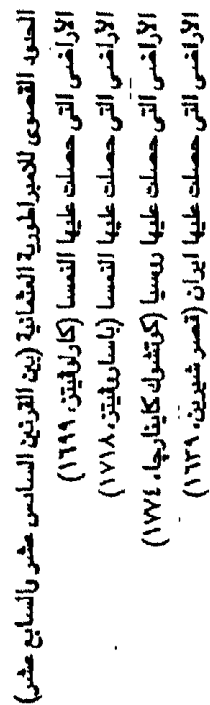 الحدود القصوى للامبراطورية العثمانية (بين القرنين السادس عشر والسابع عشر)
الأراضي التي حصلت عليها النمسا (كارلوفيتز، ١٦٩٩)
الأراضي التي حصلت عليها النمسا (باساروفيتز، ١٧١٨)
الأراضي التي حصلت عليها روسيا (كوتشوك كاينارجا، ١٧٧٤)
الأراضي التي حصلت عليها ايران (قصر شيرين، ١٦٣٩)